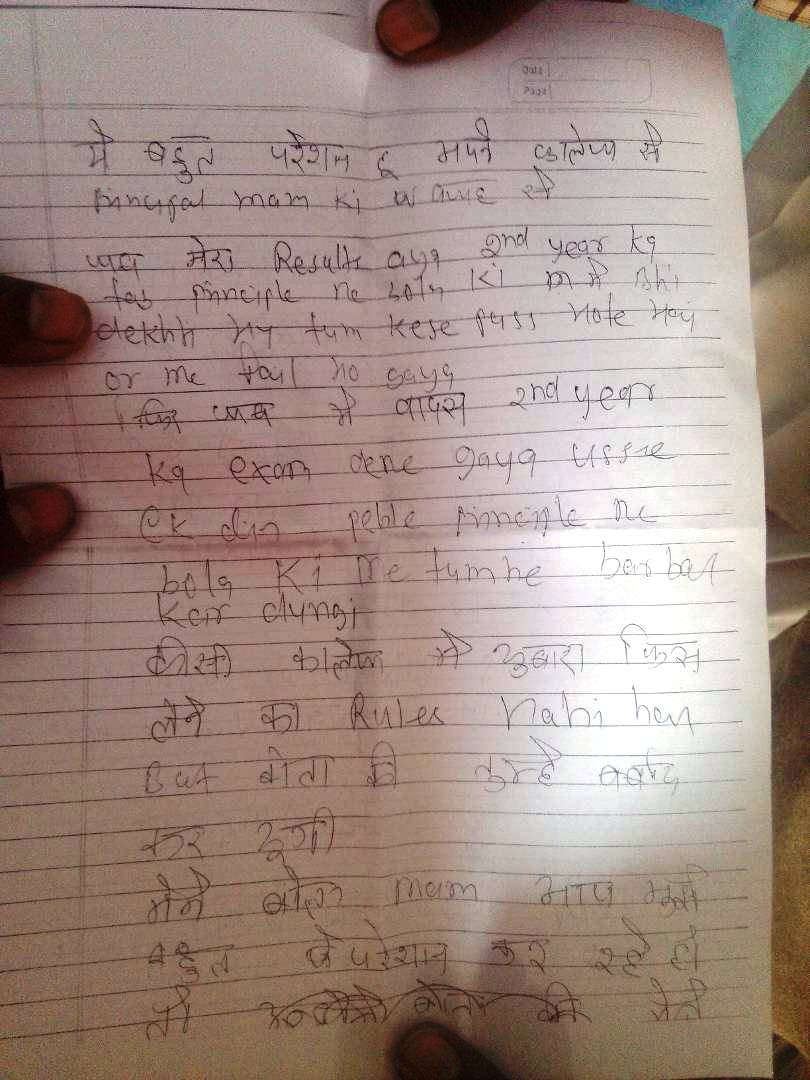 Date
Page
में बहुत परेशान हू अपने कालेज से
principal mam ki wajye से
जब मेरा Results aya 2nd year ka
principle ne bola ki m me bhi
dekhti hy tum kese pass hote hay
or me fail ho gaya
फिर जब मे वापस 2nd year
ka exam dene gaya ussre
Ek din pehle principle ne
bola Ki me tumhe barbar
kar dungi
कीसी कालेज मे दुबारा फिस
लेने का Rules nahi hai
But बोला की तुम्हे बर्बाद
कर दूगी
मेने बोला mam आप मुझे
बहुत परेशान कर रहे हो
तो बोला की मेने